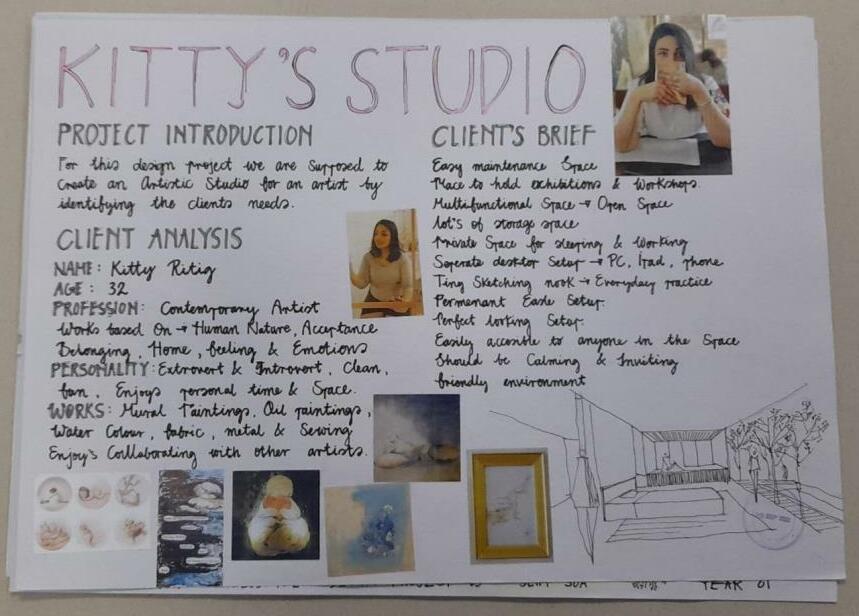 KITTY'S STUDIO
PROJECT INTRODUCTION
For this design project we are supposed to
create an Artistic Studio for an artist by
identifying the clients needs.
CLIENT ANALYSIS
NAME: Kitty Ritig
AGE: 32
PROFESSION: Contemporary Artist
Works based On → Human Nature, Acceptance
Belonging, Home, feeling & Emotions
PERSONALITY: Extrovert & Introvert, Clean,
fun, Enjoys personal time & Space.
WORKS: Mural Paintings, Oil paintings,
Water Colour, fabric, metal & Sewing
Enjoy's Collaborating with other artists.
CLIENT'S BRIEF
Easy maintenance Space
Place to hold exhibitions & Workshops.
Multifunctional Space → Open Space
lot's of storage space
Private Space for sleeping & Working
Seperate desktop Setup → PC, Ipad, phone
Tiny Sketching nook → Everyday practice
Permenant Easle Setup.
Perfect lighting Setup.
Easily accesible to anyone in the Space
Should be Calming & Inviting
friendly environment
YEAR 01